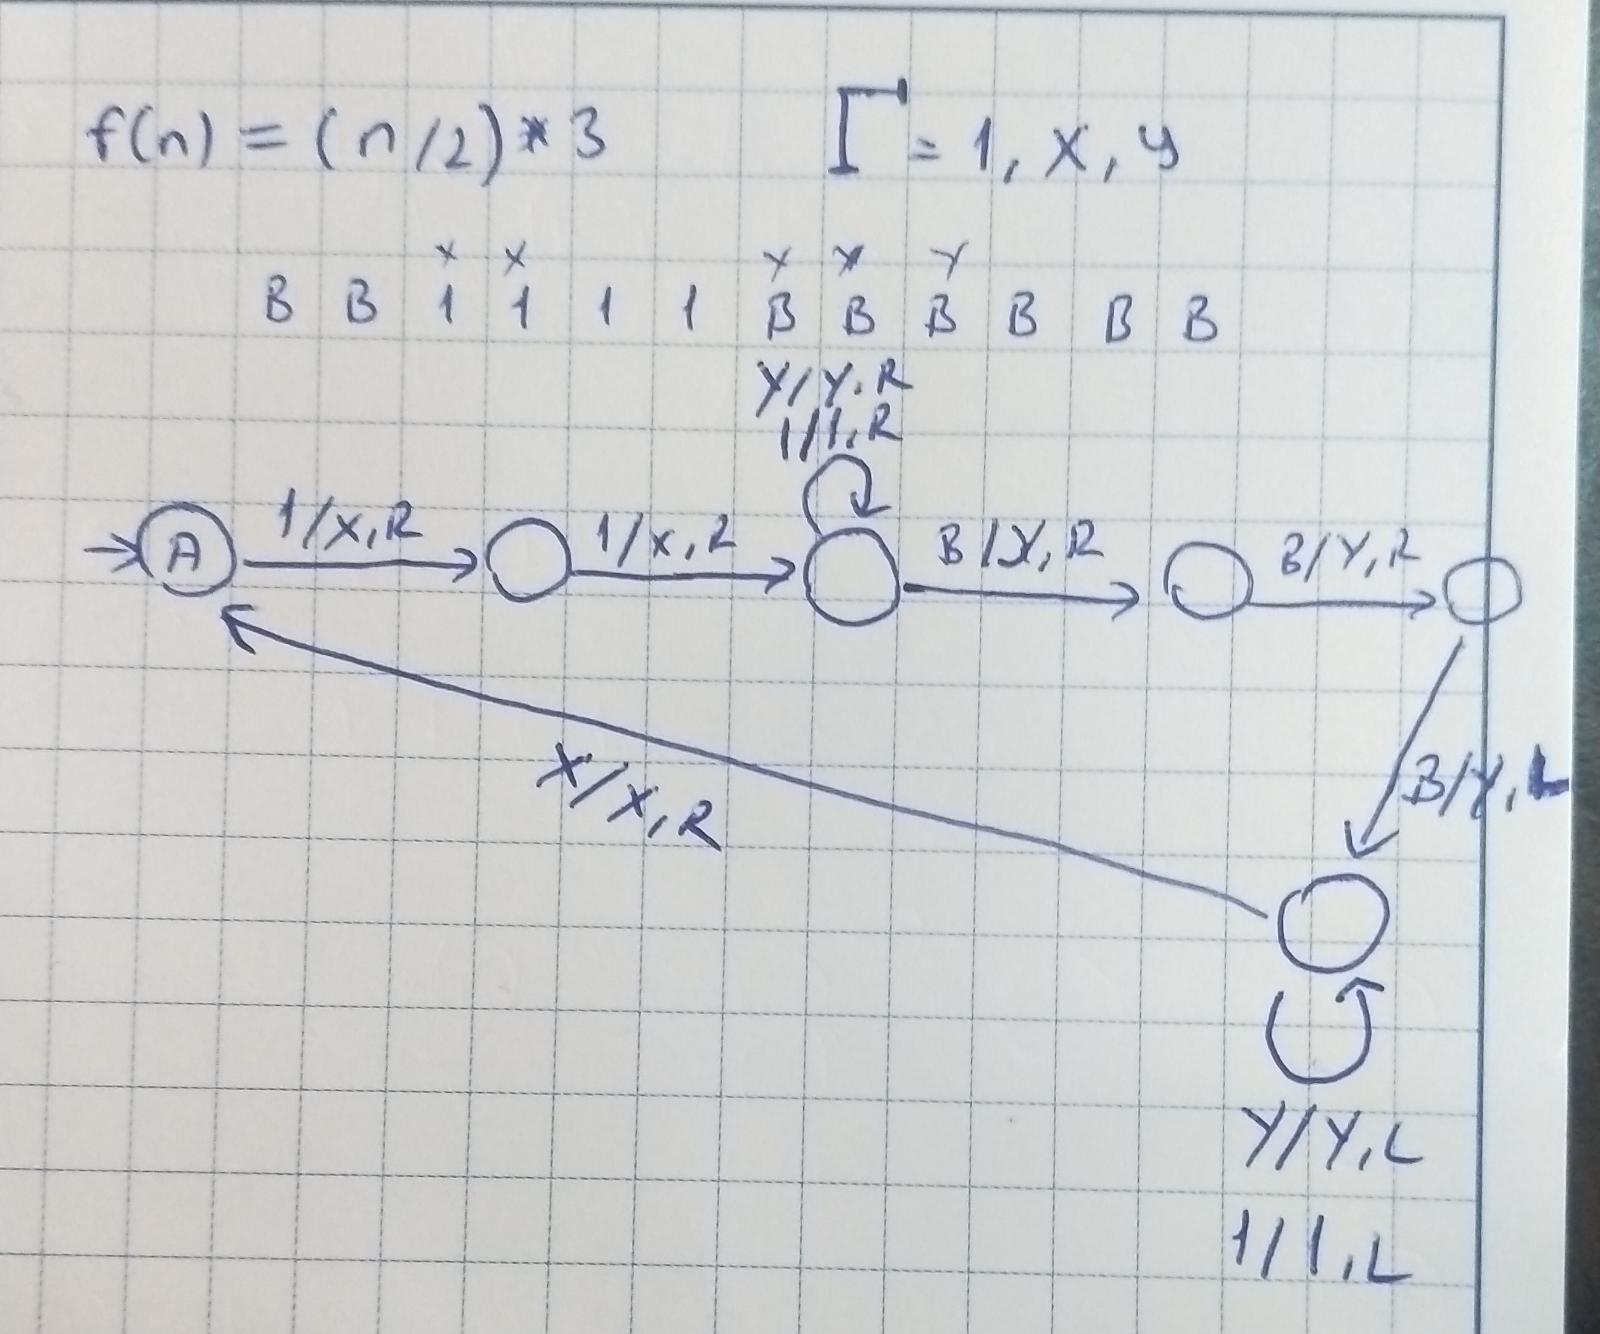 f(n) = (n/2)*3 Γ = 1, X, y
X X Y Y Y
B B 1 1 1 1 B B B B B B
Y/Y,R
1/1,R
→ A 1/X,R 1/X,R B/Y,R B/Y,R
X/X,R B/Y,L
Y/Y,L
1/1,L